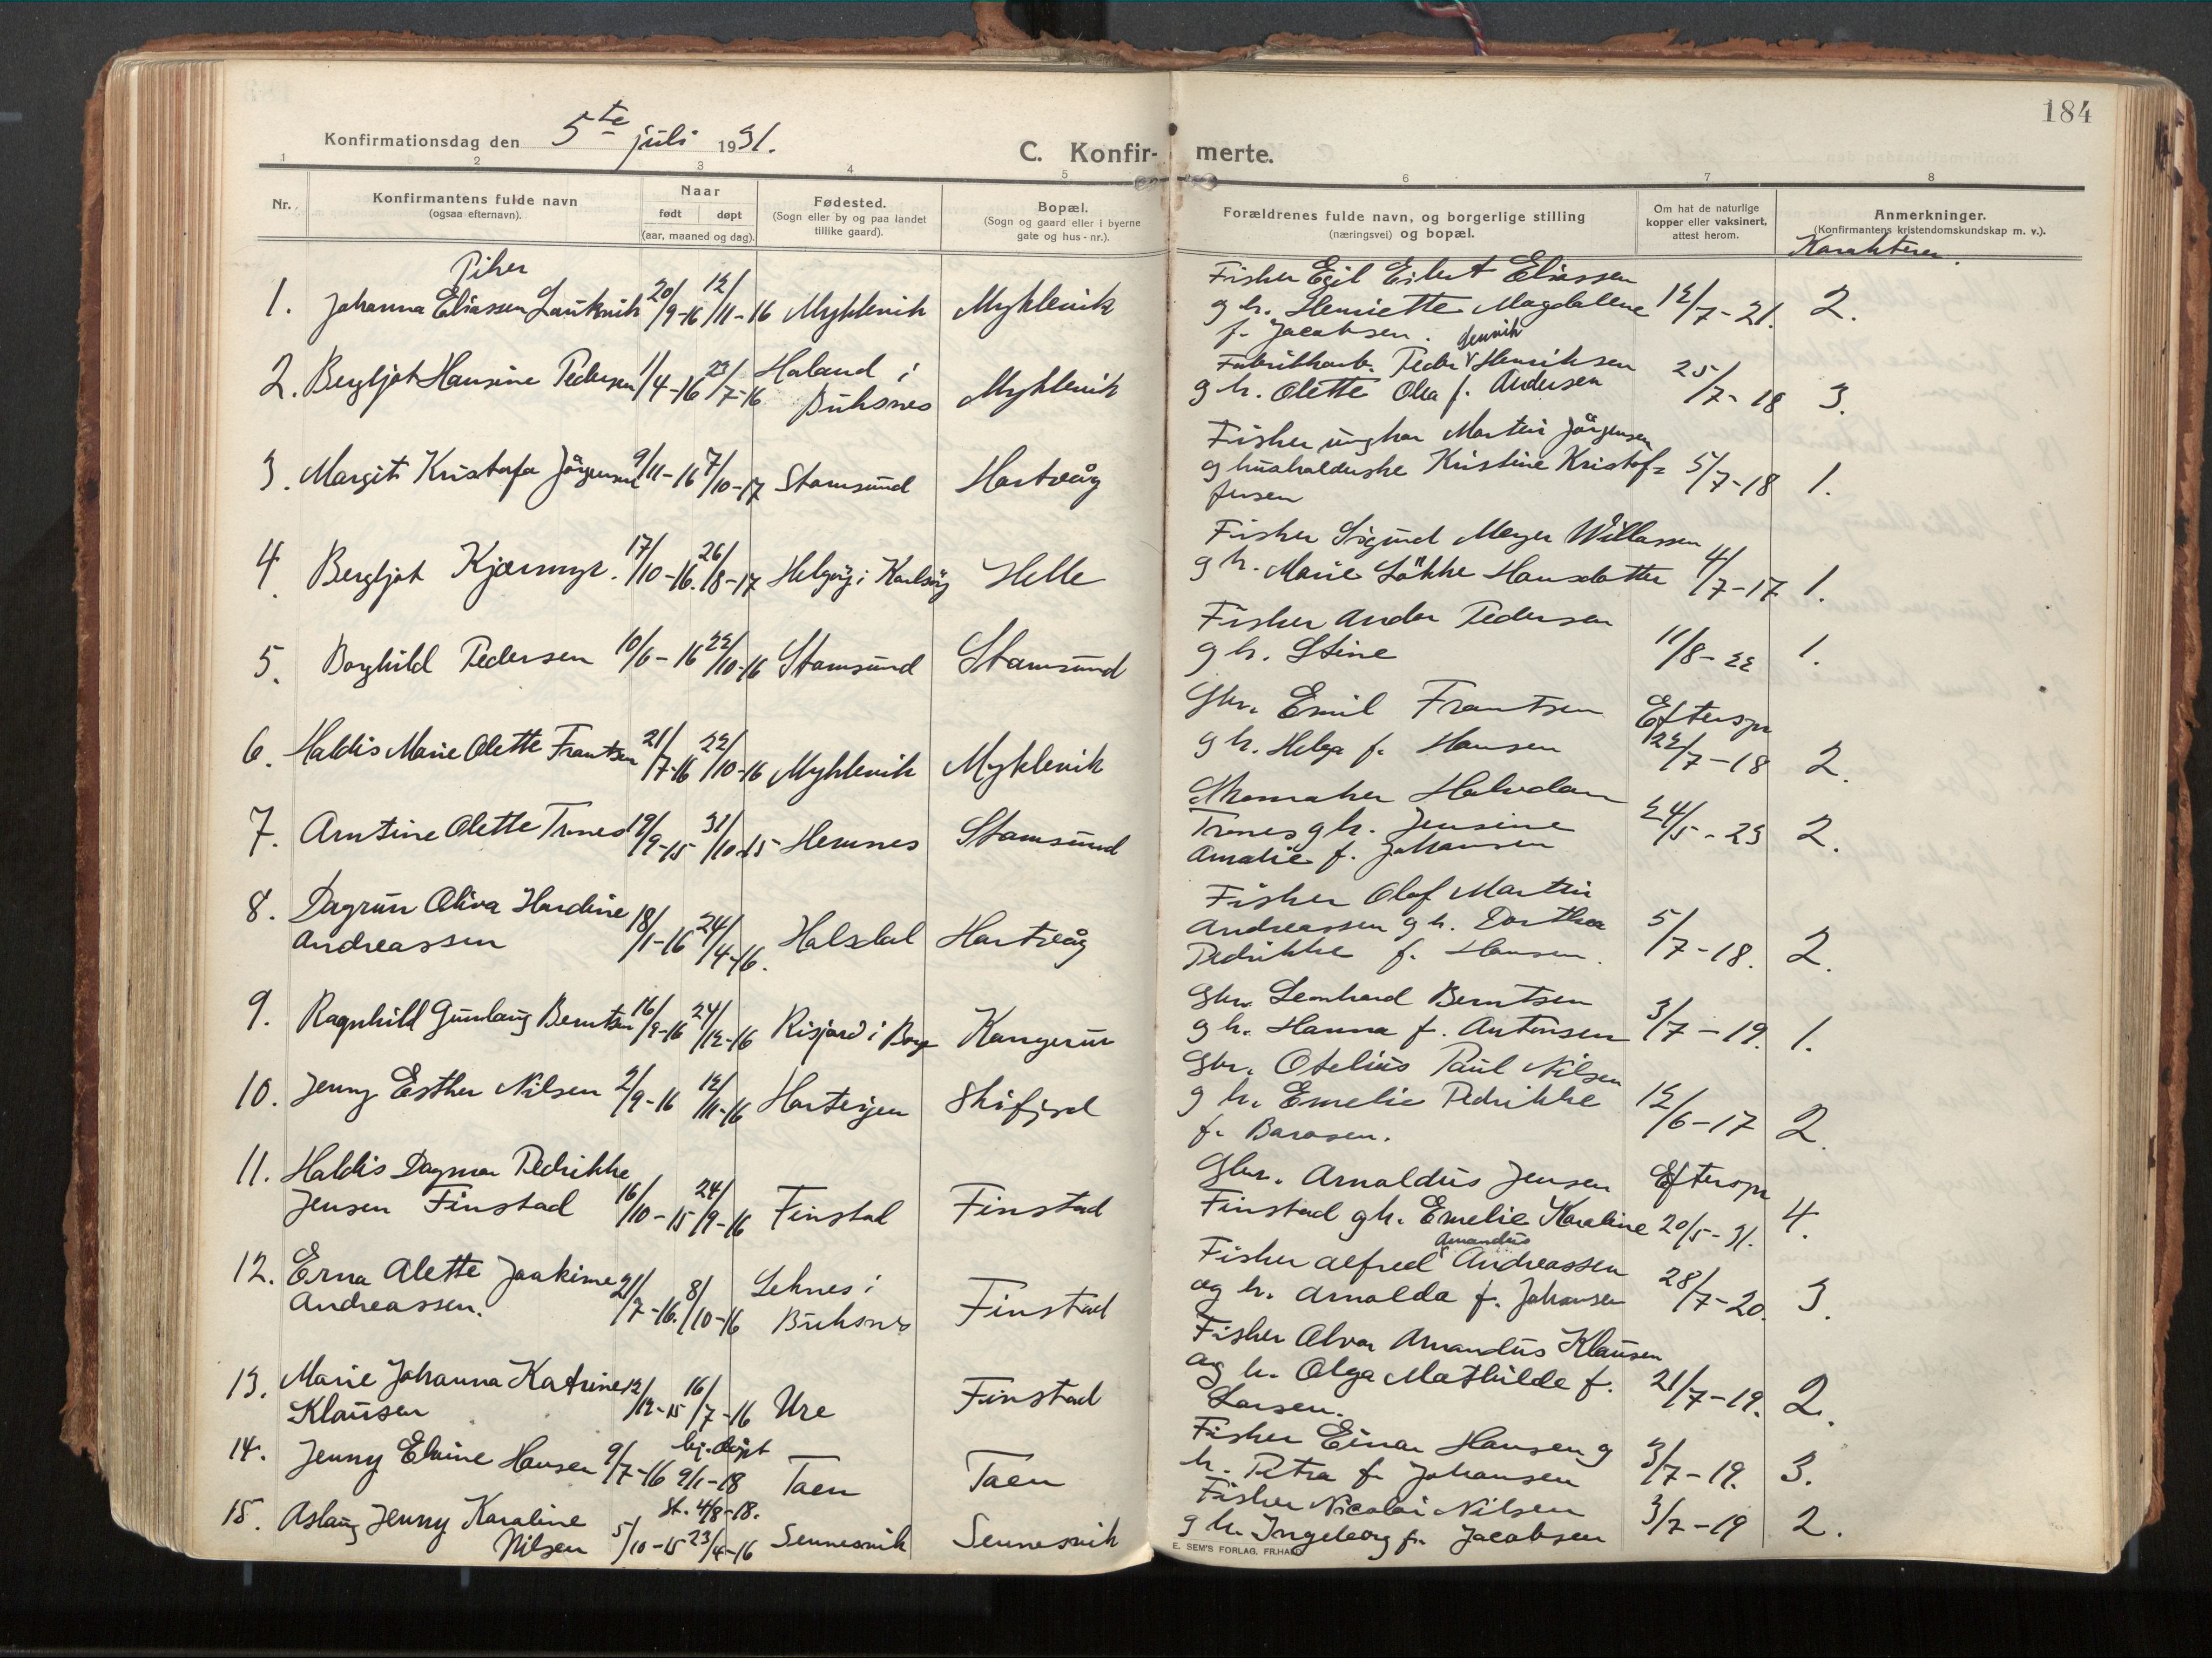 184
Konfirmationsdag den 5te juli 1931.
C. Konfir- merte.
1 2 3 4 5 6 7 8
Nr. Konfirmantens fulde navn (ogsaa efternavn). Naar født døpt (aar, maaned og dag). Fødested. (Sogn eller by og paa landet tillike gaard). Bopæl. (Sogn og gaard eller i byerne gate og hus-nr.). Forældrenes fulde navn, og borgerlige stilling (næringsvei) og bopæl. Om hat de naturlige kopper eller vaksinert, attest herom. Anmerkninger. (Konfirmantens kristendomskundskap m. v.).
Karakterer.
Piker
Fisker Egil Eilert Eliassen
1. Johanna Eliassen Laukvik 20/9-16 12/11-16 Myklevik Myklevik g h. Henriette Magdalene 12/7-21. 2.
f. Jacobsen.
2. Bergljot Hansine Pedersen 1/4-16 23/7-16 Haland i Buksnes Myklevik Fabrikkarb. Peder Henriksen 25/7-18 3.
g h. Olette Olea f. Andersen
Fisker ungkar Martin Jörgensen
3. Margit Kristofa Jörgensen 9/11-16 7/10-17 Stamsund Hartvåg g husholderske Kristine Kristof= 5/7-18 1.
fersen
Fisker Sigurd Meyer Willassen
4. Bergljot Kjærmyr. 17/10-16. 26/8-17 Helgöy i Karlsöy Helle g h. Marie Lökke Hansdatter 4/7-17 1.
Fisker Andor Pedersen
5. Borghild Pedersen 10/6-16 22/10-16 Stamsund Stamsund g h. Stine 11/8-22 1.
Gbr. Emil Frantsen Efterspr
6. Haldis Marie Olette Frantsen 21/7-16 22/10-16 Myklevik Myklevik g h. Helga f. Hansen 22/7-18 2.
Skomaker Halvdan
7. Arntine Olette Trones 19/9-15 31/10-15 Hemnes Stamsund Trones g h. Jensine 24/5-23 2.
Amalie f. Johansen
8. Dagrun Oliva Hardine Fisker Olaf Martin
Andreassen 18/1-16 24/4-16. Halsdal Hartvåg Andreassen g h. Dorthea 5/7-18. 2.
Pedrikke f. Hansen.
Gbr. Leonhard Berntsen
9. Ragnhild Gunlaug Berntsen 16/9-16 24/12-16 Risjord i Borge Kangerur g h. Hanna f. Antonsen 3/7-19. 1.
Gbr. Otelius Paul Nilsen
10. Jenny Esther Nilsen 2/9-16 12/11-16 Hartvåen Skifjord g h. Emelie Pedrikke 12/6-17 2.
f. Barosen.
11. Haldis Dagmar Pedrikke Gbr. Arnoldus Jensen Efterspr
Jensen Finstad 16/10-15 24/9-16 Finstad Finstad Finstad g h. Emelie Karoline 20/5-31. 4.
12. Erna Alette Joakime Fisker Alfred Amandus Andreassen
Andreassen. 21/7-16. 8/10-16 Leknes i Buksnes Finstad og h. Arnolda f. Johansen 28/7-20. 3.
Fisker Alvar Amandus Klausen
13. Marie Johanna Katrine og h. Olga Mathilde f.
Klausen 12/12-15 16/7-16 Ure Finstad Larsen. 21/7-19. 2.
hj. døpt Fisker Einar Hansen g
14. Jenny Elvine Hansen 9/7-16 9/1-18 Taen Taen h. Petra f. Johansen 3/7-19. 3.
st. 4/8-18.
15. Aslaug Jenny Karoline Fisker Nicolai Nilsen
Nilsen 5/10-15 23/4-16 Sennesvik Sennesvik g h. Ingeborg f. Jacobsen 3/7-19 2.
E. SEM'S FORLAG, FR.HALD